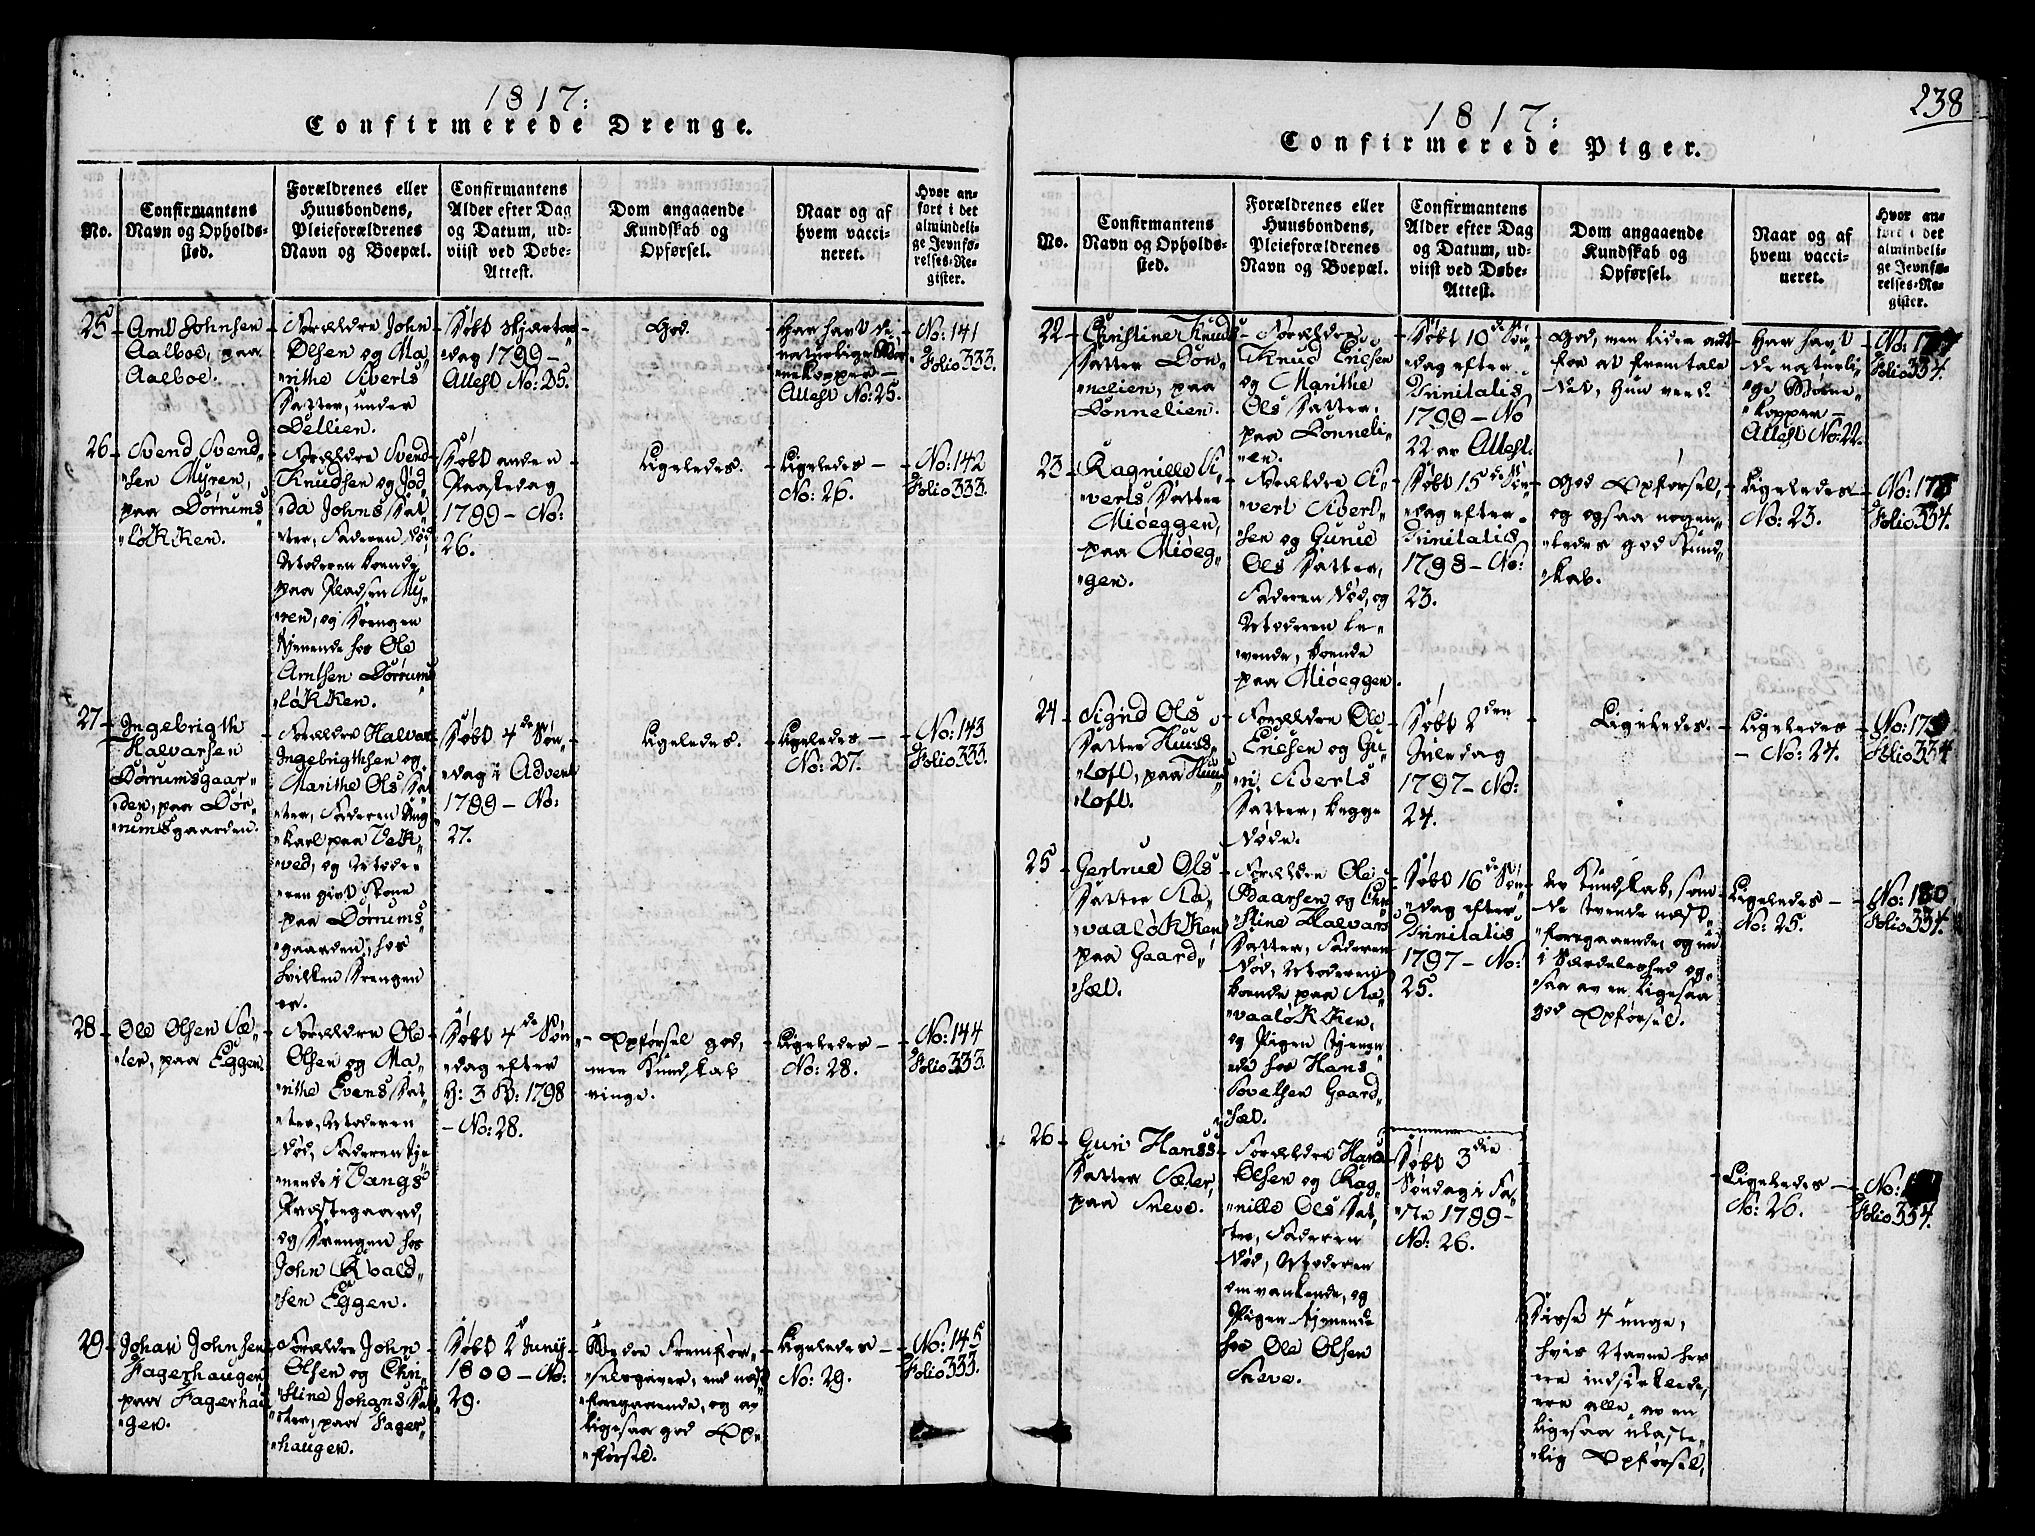 1817:
Confirmerede Drenge.
No.
Confirmantens
Navn og Opholds-
sted.
Forældrenes eller
Huusbondens,
Pleieforældrenes
Navn og Boepæl.
Confirmantens
Alder efter Dag
og Datum, ud-
viist ved Døbe-
Attest.
Dom angaaende
Kundskab og
Opførsel.
Naar og af
hvem vacci-
neret.
Hvor an-
ført i det
almindeli-
ge Jevnfø-
relses-Re-
gister.
25
Arnt Johnsen
Aalboe, paa
Aalboe.
Forældre John
Olsen og Ma-
rithe Siverts
Datter, under
Dellien.
Døbt Skjærtors
dag 1799 –
Attest No: 25.
God.
Har havt de
naturlige Bør-
nekopper –
Attest No: 25.
No: 141
Folio 333.
26
Svend Svend-
sen Myren,
paa Dørrums-
løkken.
Forældre Svend
Knudsen og
Johns Dat-
ter, Faderen død,
Moderen boende
paa Pladsen My-
ren, og Drengen
tjenende hos Ole
Arntsen Dørrums
løkken.
Døbt anden
Paaskedag
1799 – No:
26.
Ligeledes.
Ligeledes –
No: 26.
No: 142
Folio 333.
27
Ingebrigth
Halvarsen
Dørrumsgaar-
den, paa Dør-
rumsgaarden.
Forældre Halvar
Ingebrigthsen og
Marithe Ols Dat-
ter, Faderen Ung-
karl paa Vek-
ved, og Mode-
ren givt Kone
paa Dørrums-
gaarden, hos
hvilken Drengen
er.
Døbt 4de Søn-
dag i Advent
1799 – No:
27.
Ligeledes.
Ligeledes –
No: 27.
No: 143
Folio 333.
28
Ole Olsen Sæ-
ter, paa Eggen.
Forældre Ole
Olsen og Ma-
rithe Evens Dat-
ter, Moderen
død, Faderen tje-
nende i Vangs
Præstegaard,
og Drengen hos
John Evald-
sen Eggen.
Døbt 4de Søn-
dag efter
H: 3 K: 1798
– No: 28.
Opførsel god,
men Kundskab
ringe.
Ligeledes –
No: 28.
No: 144
Folio 333.
29
Johan Johnsen
Fagerhaugen
paa Fagerhau-
gen.
Forældre John
Olsen og Chri-
stine Johans Dat-
ter, paa Fager-
haugen.
Døbt 2d Junij
1800 – No:
29.
Bedre Fremfør-
selsgaver, end næst
foregaaende, og av
ligesaa god Op-
førsel.
Ligeledes –
No: 29.
No: 145
Folio 333.
238
1817:
Confirmerede Piger.
No.
Confirmantens
Navn og Opholds-
sted.
Forældrenes eller
Huusbondens,
Pleieforældrenes
Navn og Boepæl.
Confirmantens
Alder efter Dag
og Datum, ud-
viist ved Døbe-
Attest.
Dom angaaende
Kundskab og
Opførsel.
Naar og af
hvem vacci-
neret.
Hvor an-
ført i det
almindeli-
ge Jevnfø-
relses-Re-
gister.
22
Christine Knuds
Datter Don-
nelien, paa
Donnelien.
Forældre
Knud Ericsen
og Marithe
Ols Datter,
paa Donneli-
en.
Døbt 10de Søn-
dag efter
Trinitatis
1799 – No
22 av Attest.
God, men liden
for at fremtale
det, hun veed.
Har havt
de naturli-
ge Børne-
kopper –
Attest No: 22.
No:
Folio 334.
23
Ragnille Si-
verts Datter
Miøeggen,
paa Miøeg-
gen.
Forældre Si-
vert Sivert-
sen og Gunild
Ols Datter,
Faderen død, og
Moderen le-
vende, boende
paa Miøeggen.
Døbt 15de Søn-
dag efter
Trinitatis
1798 – No:
23.
God Opførsel,
og ogsaa nogen-
ledes god Kund-
skab.
Ligeledes –
No: 23.
No: 178
Folio 334.
24
Sigrid Ols
Datter Huus-
løft, paa Huus
løft.
Forældre Ole
Ericsen og Gu-
ri Siverts
Datter, begge
døde.
Døbt 2den
Juledag
1797 – No:
24.
Ligeledes.
Ligeledes
– No: 24.
No: 179
Folio 334
25
Gertrud Ols
Datter Ra-
vaaløkken
paa Gaard-
sæt.
Forældre Ole
Baarsen og Chri-
stine Halvars
Datter, Faderen
død, Moderen
boende paa Ra-
vaaløkken,
og Pigen tjenen-
de hos Hans
Povelsen Gaard-
sæt.
Døbt 16de Søn-
dag efter
Trinitatis
1797 – No:
25.
den Kundskab, som
de tvende næst-
foregaaende, og
i Særdeleshed og-
saa av en ligesaa
god Opførsel.
Ligeledes –
No: 25.
No: 180
Folio 334.
26
Guri Hans
Datter Sæter,
paa Sneve.
Forældre Hans
Olsen og Rag-
nille Ols Dat-
ter, Faderen
død, Moderen
omvankende, og
Pigen tjenende
hos Ole Olsen
Sneve.
Døbt 3die
Søndag i Fa-
ste 1799 –
No: 26.
Disse 4 unge,
hvis Navne her
ere indsirklede,
ere alle av en
ligesaa ulaste-
lig Opførsel,
Ligeledes –
No: 26.
No:
Folio 334.